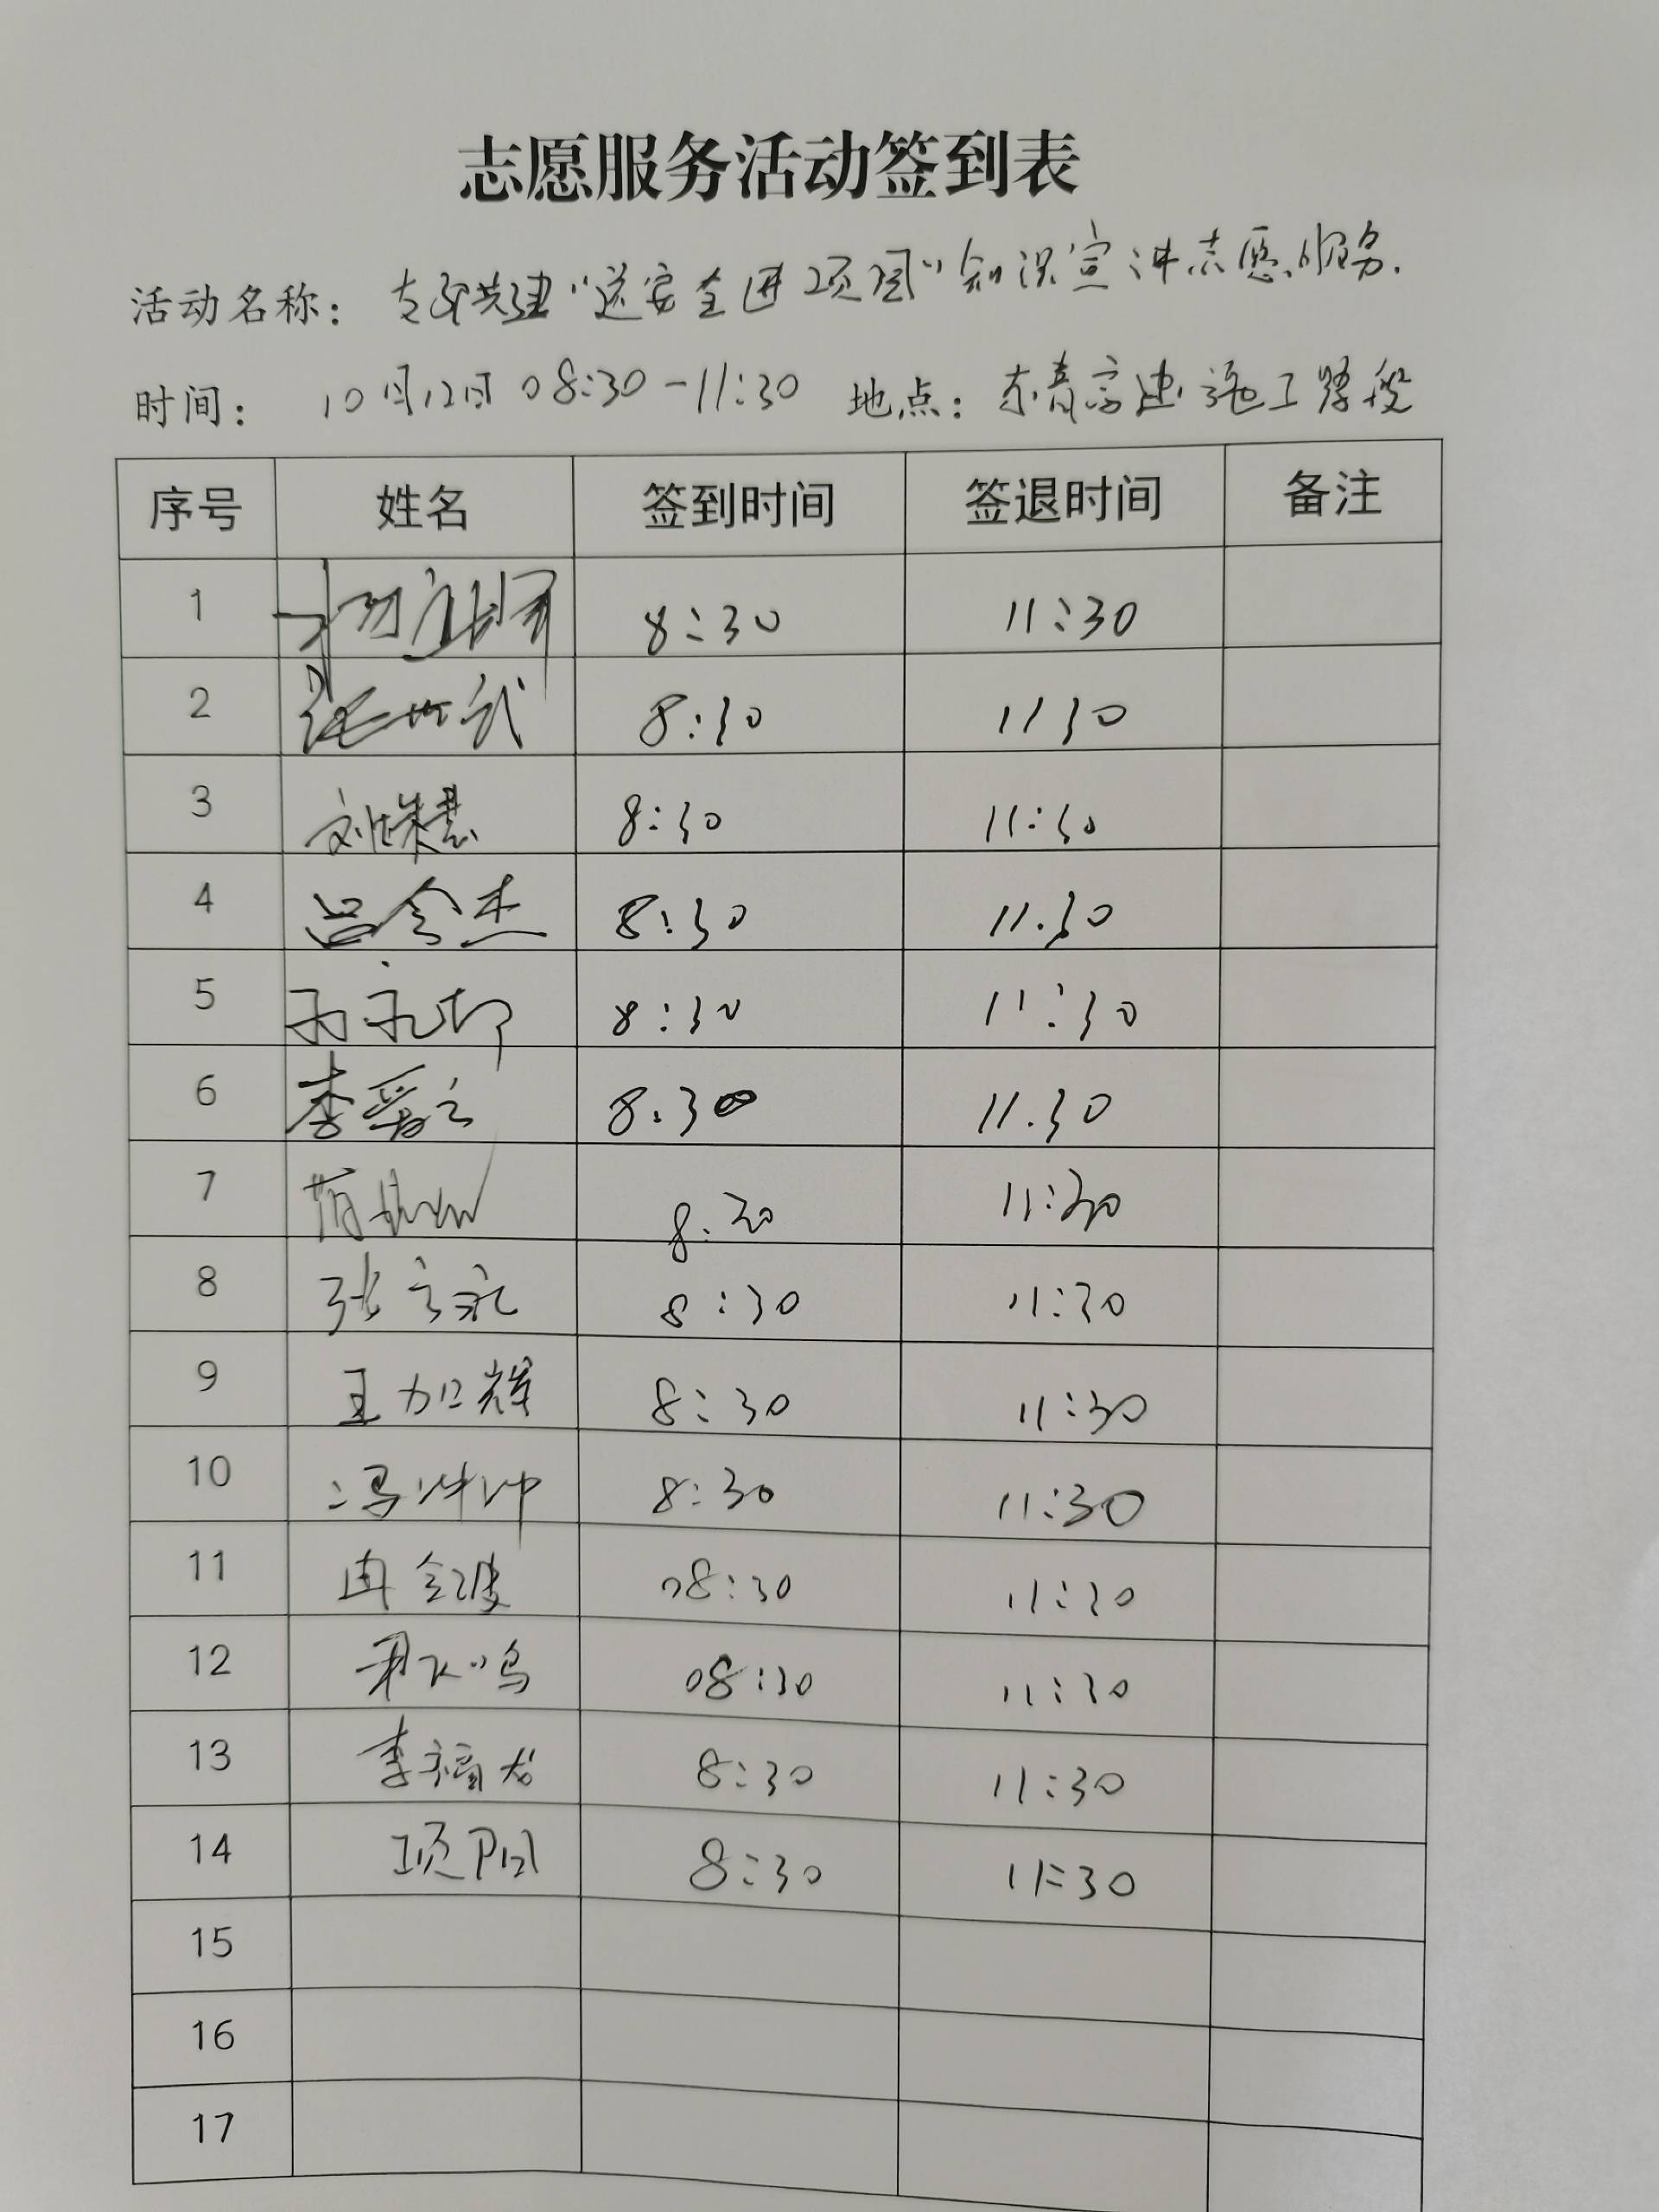 志愿服务活动签到表
活动名称: 支部共建"送安全进项目"知识宣讲志愿服务.
时间: 10月12日 08:30-11:30 地点: 东青高速施工路段
序号 姓名 签到时间 签退时间 备注
1 8:30 11:30
2 8:30 11 30
3 8:30 11:30
4 吕令杰 8:30 11.30
5 8:30 11:30
6 李爱云 8.30 11.30
7 8:30 11:30
8 张立永 8:30 11:30
9 王加辉 8:30 11:30
10 冯帅帅 8:30 11:30
11 冉金波 08:30 11:30
12 08:30 11:30
13 李福龙 8:30 11:30
14 项阳 8:30 11:30
15
16
17